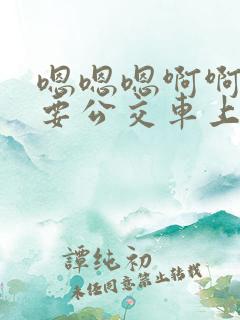 嗯嗯嗯啊啊
要公交車上
譚純初
未任同意禁止转载